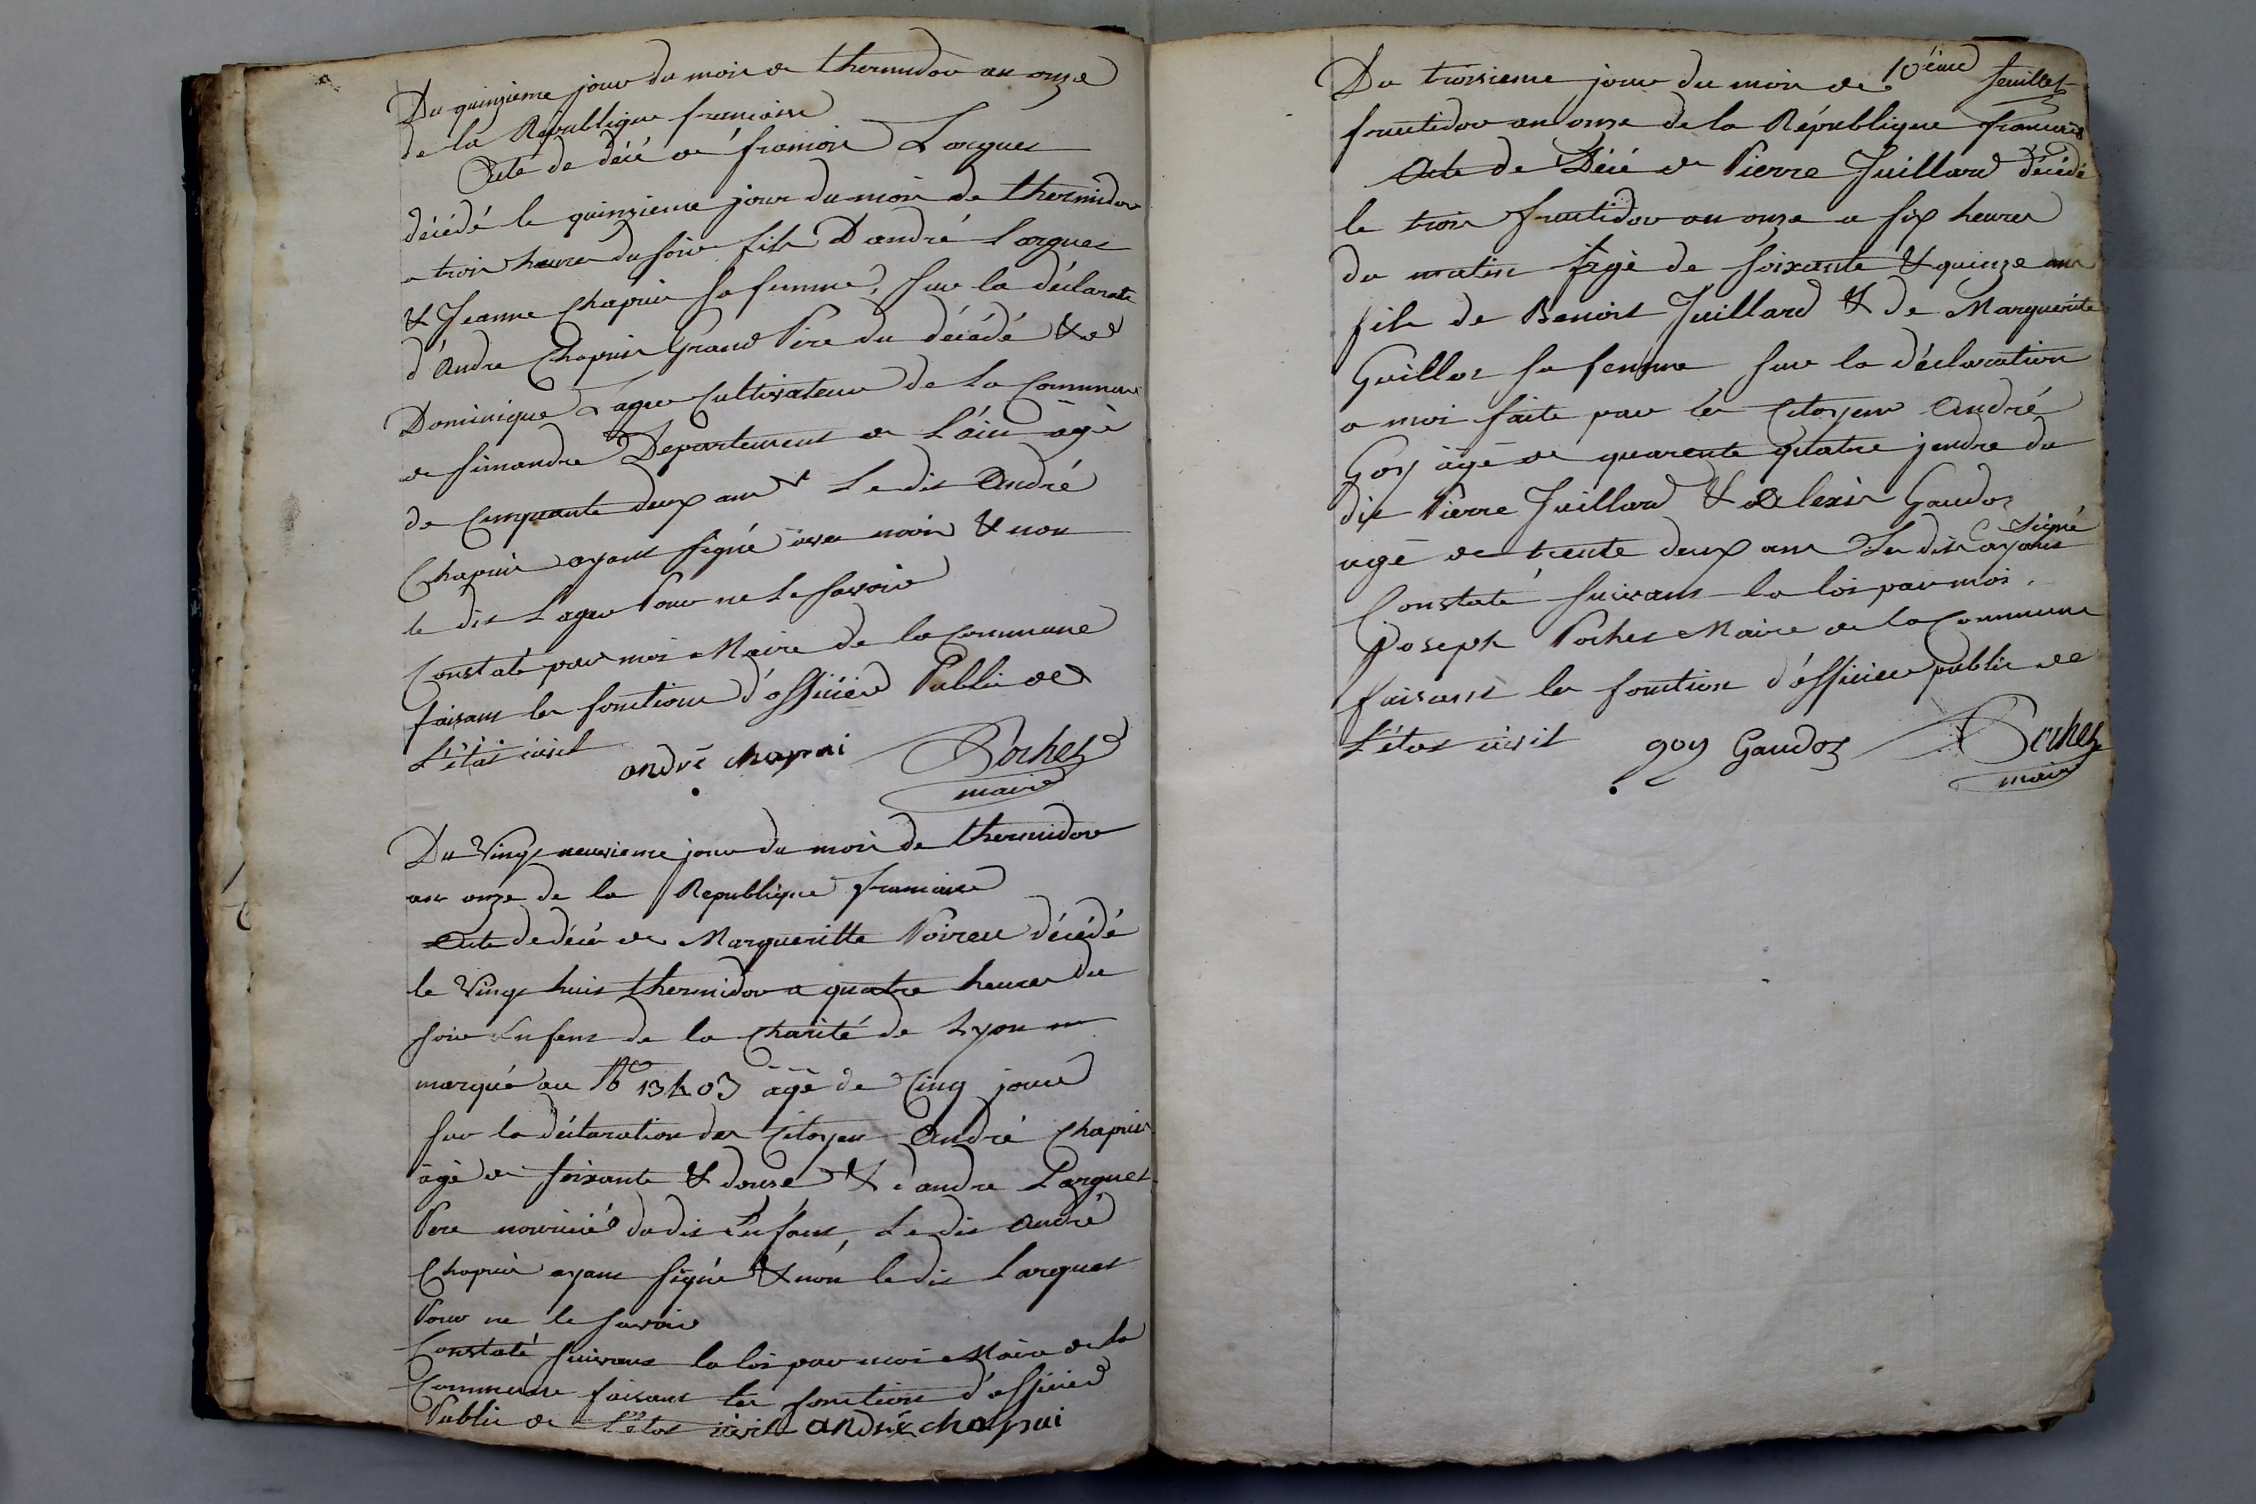 Du quinzieme jour du mois de thermidor an onze
de la Republique francaise
Acte de décé de francois Larguet
décédé le quinzieme jour du mois de thermidor
a trois heures du soir fils D'andré Larguet
& Jeanne Chapuis sa femme, sur la déclarati
d'André Chapuis Grand Pere du décédé & de
Dominique Lague Cultivateur de la Commune
de Simandre Departement de L'ain âgé
de Cinquante deux ans & Le dit André
Chapuis ayant signé avec moi & non
le dit Lague Pour ne le savoir
Constaté par moi Maire de la Commune
faisant les fonctions d'officier Public de
L'état civil andré chapui Pochet
maire
Du Vingt neuvieme jour du mois de thermidor
an onze de la Republique francaise
Acte de décé de Margueritte Poireu décédé
le Vingt huit thermidor a quatre heures du
soir Enfent de la Charité de Lyon
marqué au No 13403 âgé de Cinq jours
sur la déclaration des Citoyen André Chapuis
âgé de soixante & douze & d'andré Larguet
Pere nouricié du dit Enfant, Le dit André
Chapuis ayant signé & non le dit Larguet
Pour ne le savoir
Constaté suivant la loi par moi Maire de la
Commune faisant les fonction d'officier
Public de L'état civil andré chapui
10éime feuillet
Du troisieme jour du mois de
fructidor an onze de la République francaise
Acte de Décé de Pierre Juillard décédé
le trois fructidor an onze a six heures
du matin âgé de soixante & quinze ans
fils de Benoit Juillard & de Marguerite
Guillot sa femme sur la déclaration
a moi faite par les Citoyens André
Goy âgé de quarente quatre jendre du
dit Pierre Juillard & alexis Gaudoz
agé de trente deux ans Les dits ayant signé
Constaté suivant la loi par moi
Joseph Pochet Maire de la Commune
faisant les fonction d'officier public de
L'état civil goy Gaudoz Pochet
maire